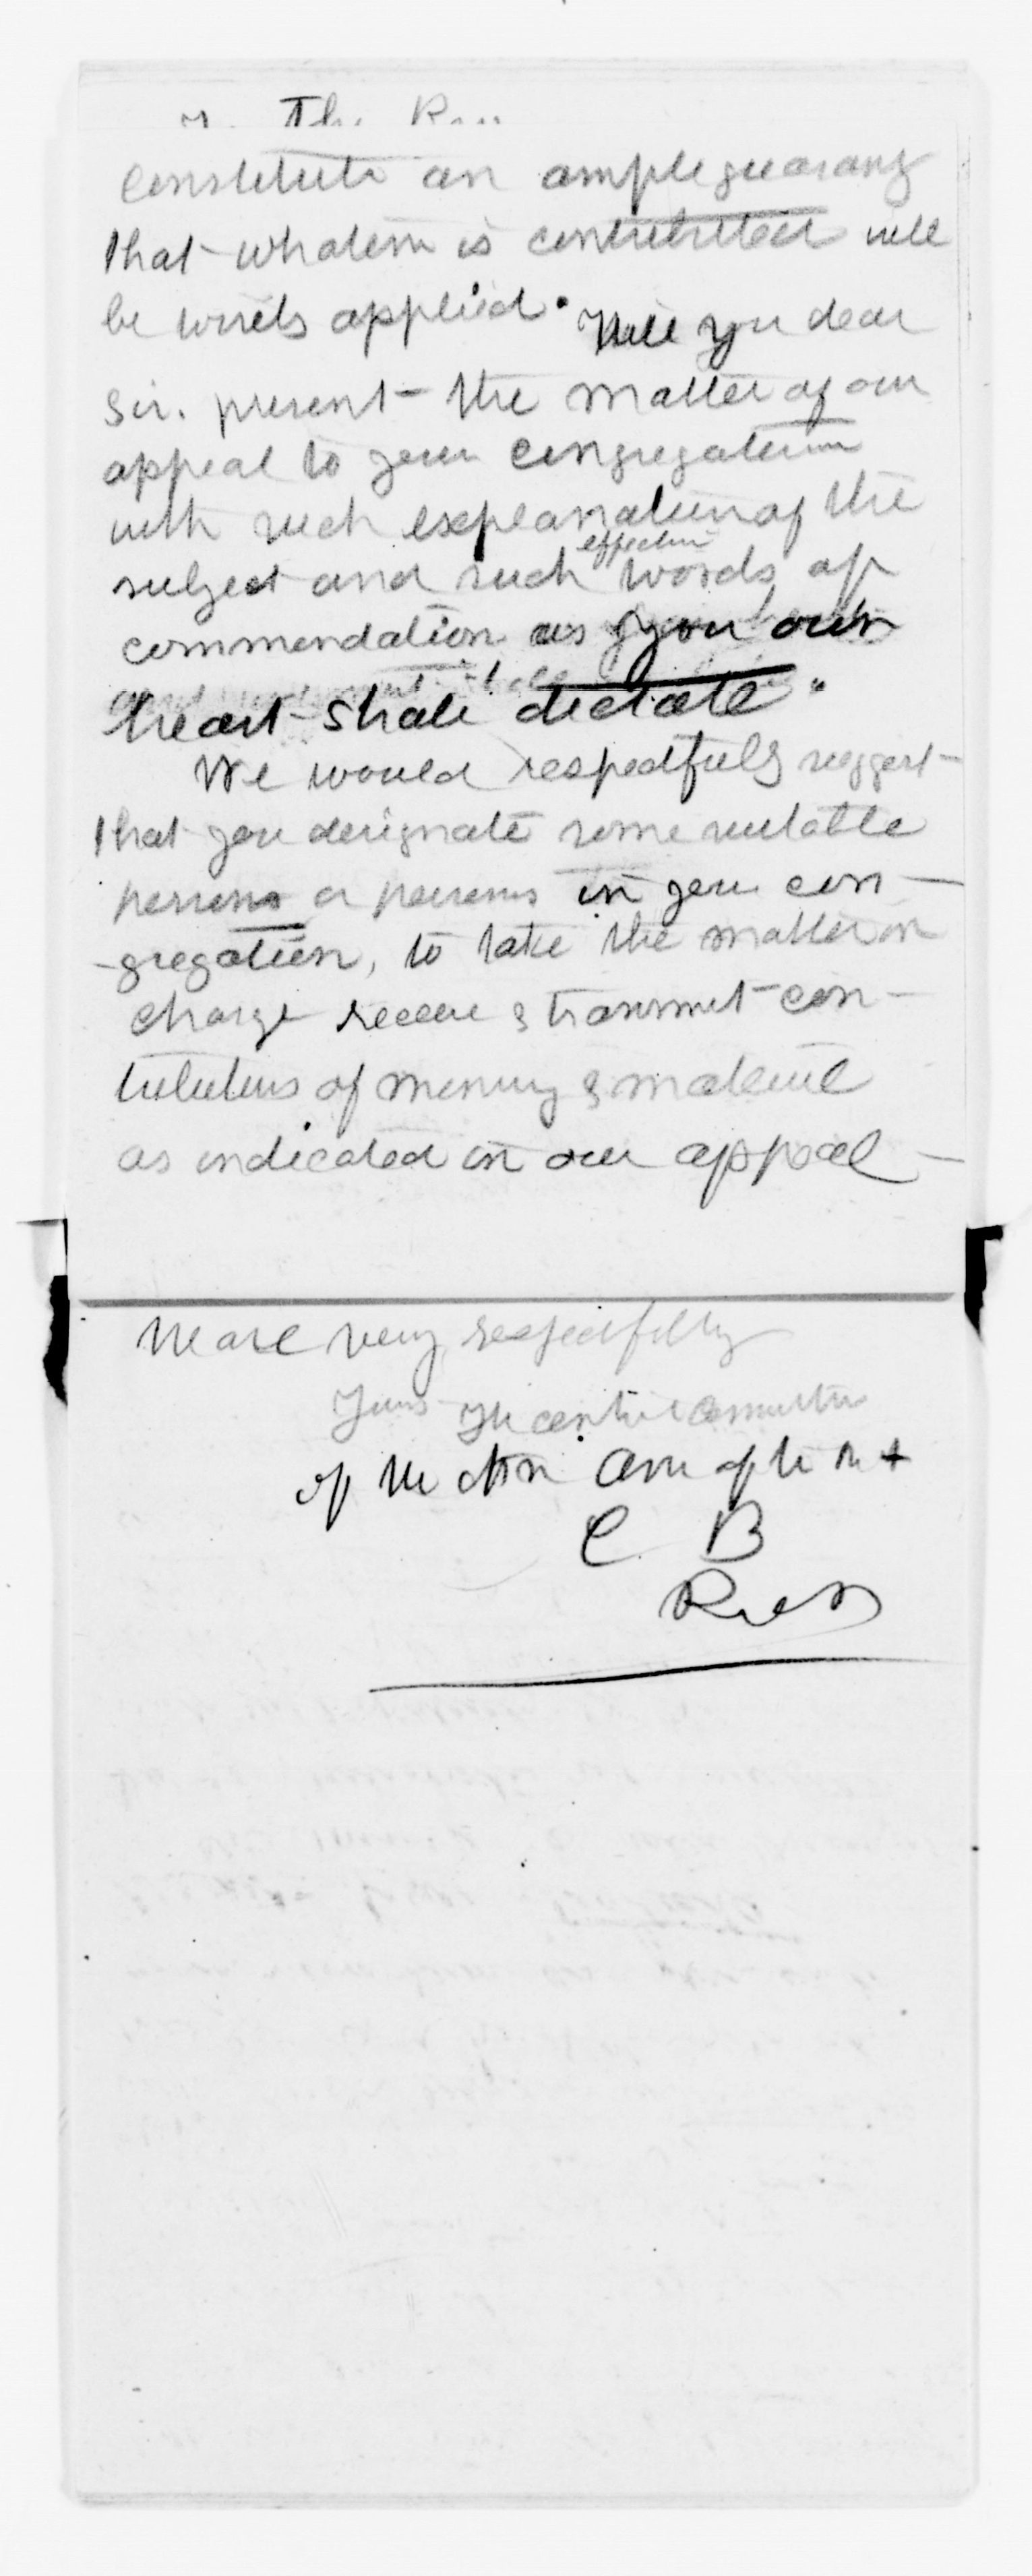 constitute an ample guarang
that whatever is contributed will
be wisely applied. Will you dear
sir. present the matter of our
appeal to your congregation
with such explanation of the
effective
subject and such words of
commendation as you own
heart shall dictate.
We would respectfully suggest
that you designate some suitable
persons or persons in your con-
-gregation, to take the matter in
charge receive & transmit con-
tributions of money & material
as indicated in our appeal
We are very respectfully
Yours
of the
C. B